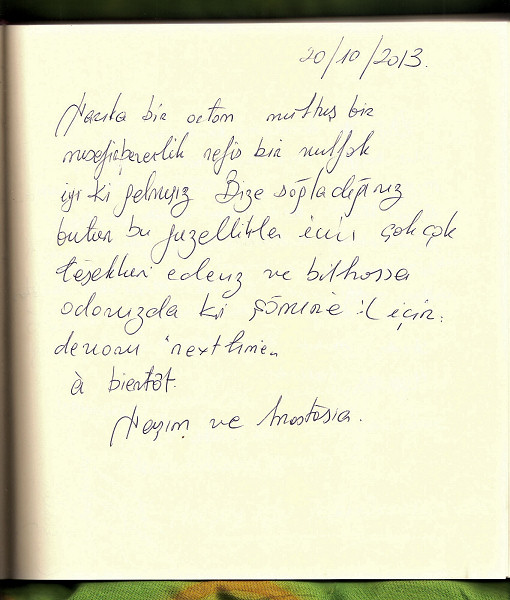 20/10/2013.
Harika bir ortam müthiş bir
misafirperverlik nefis bir mutfak
iyi ki gelmişiz Bize sağladığınız
butun bu guzellikler icin çok çok
teşekkur ederiz ve bilhassa
odamızda ki şömine için.
devamı "next time"
à bientôt.
ve Anastasia.